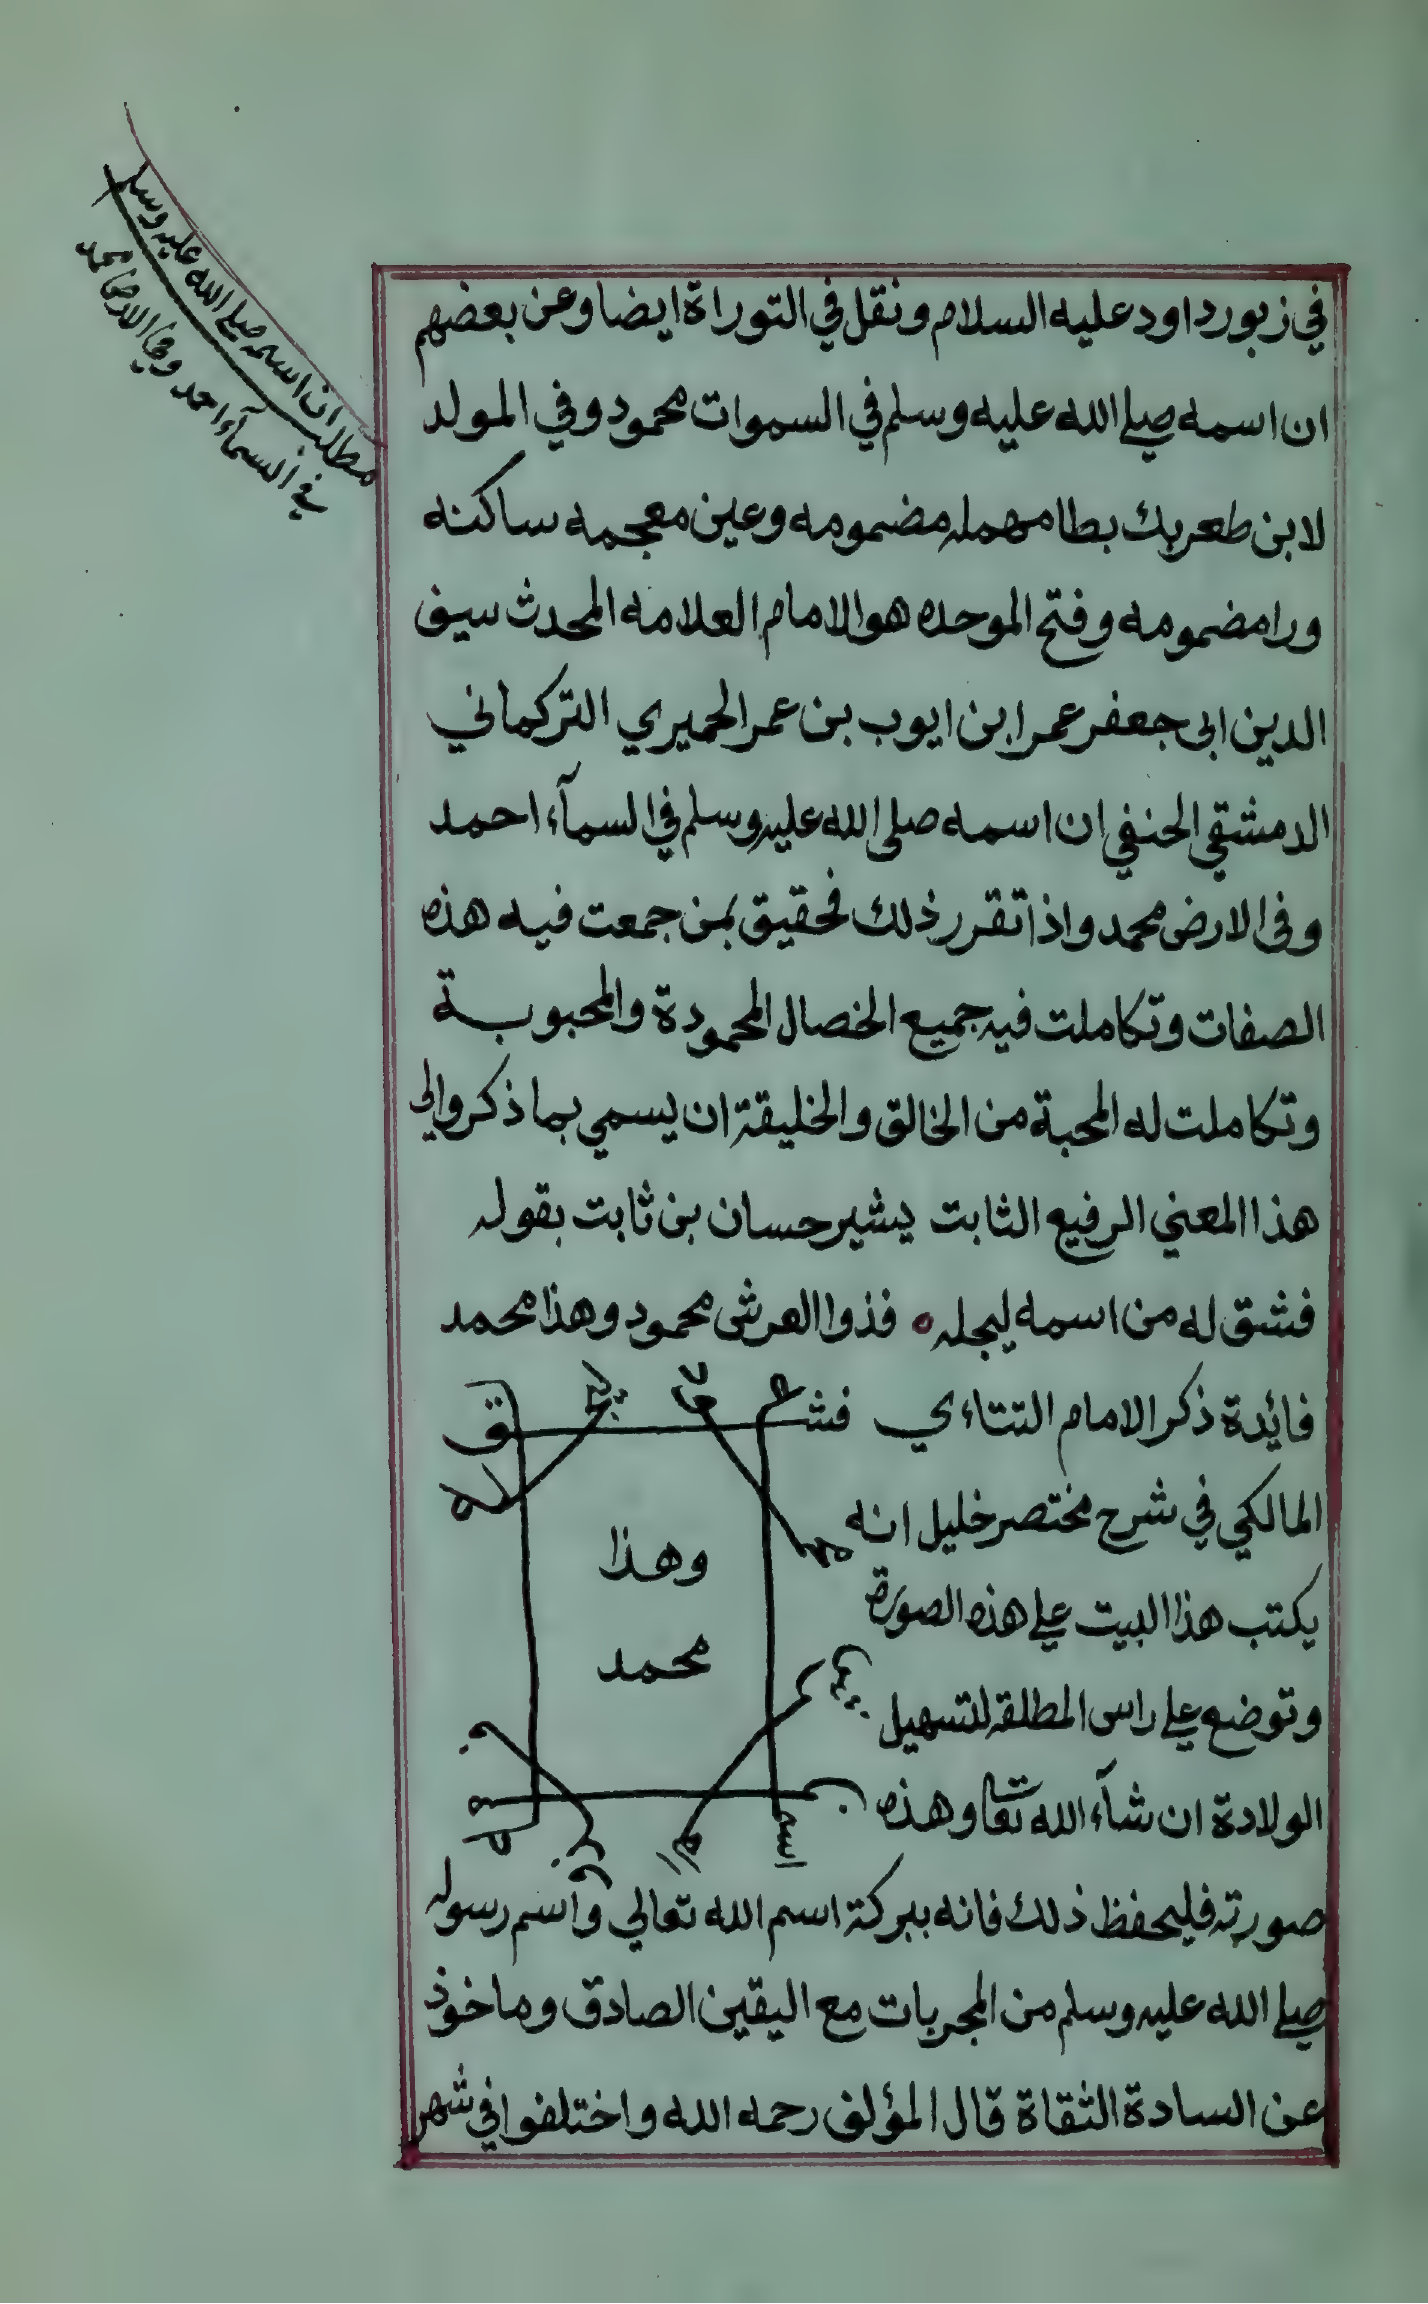 مطلب ان اسمه صلي الله عليه وسلم
في السمآء احمد وفي الارض محمد
في زبور داود عليه السلام ونقل في التوراة ايضا وعن بعضهم
ان اسمه صلي الله عليه وسلم في السموات محمود وفي المولد
لابن طغربك بطا مهمله مضمومه وعين معجمه ساكنه
ورا مضمومه وفتح الموحده هو الامام العلامه المحدث سيف
الدين ابى جعفر عمر ابن ايوب بن عمر الحميري التركماني
الدمشقي الحنفي ان اسمه صلى الله عليه وسلم في السمآء احمد
وفى الارض محمد واذا تقرر ذلك فحقيق بمن جمعت فيه هذه
الصفات وتكاملت فيه جميع الخصال المحمودة والمحبوبة
وتكاملت له المحبة من الخالق والخليقة ان يسمي بما ذكر والى
هذا المعني الرفيع الثابت يشير حسان بن ثابت بقوله
فشق له من اسمه ليجله ه فذوا العرش محمود وهذا محمد
فائدة ذكر الامام التتاءي
المالكي في شرح مختصر خليل انه
يكتب هذا البيت علي هذه الصورة
وتوضع علي راس المطلقة لتسهيل
الولادة ان شآء الله تعا وهذه
فشق
له
من
اسمه
وهذا
محمد
صورته فليحفظ ذلك فانه ببركة اسم الله تعالي واسم رسوله
صلي الله عليه وسلم من المجربات مع اليقين الصادق وماخوذ
عن السادة الثقاة قال المؤلف رحمه الله واختلفوا في شهر